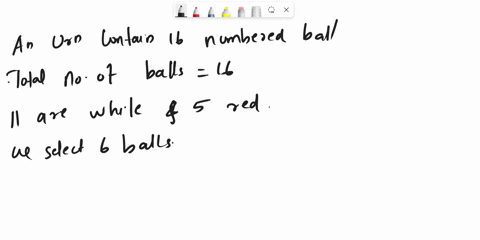 An Urn Contain 16 numbered ball
Total no. of balls = 16
11 are while & 5 red.
we select 6 balls.